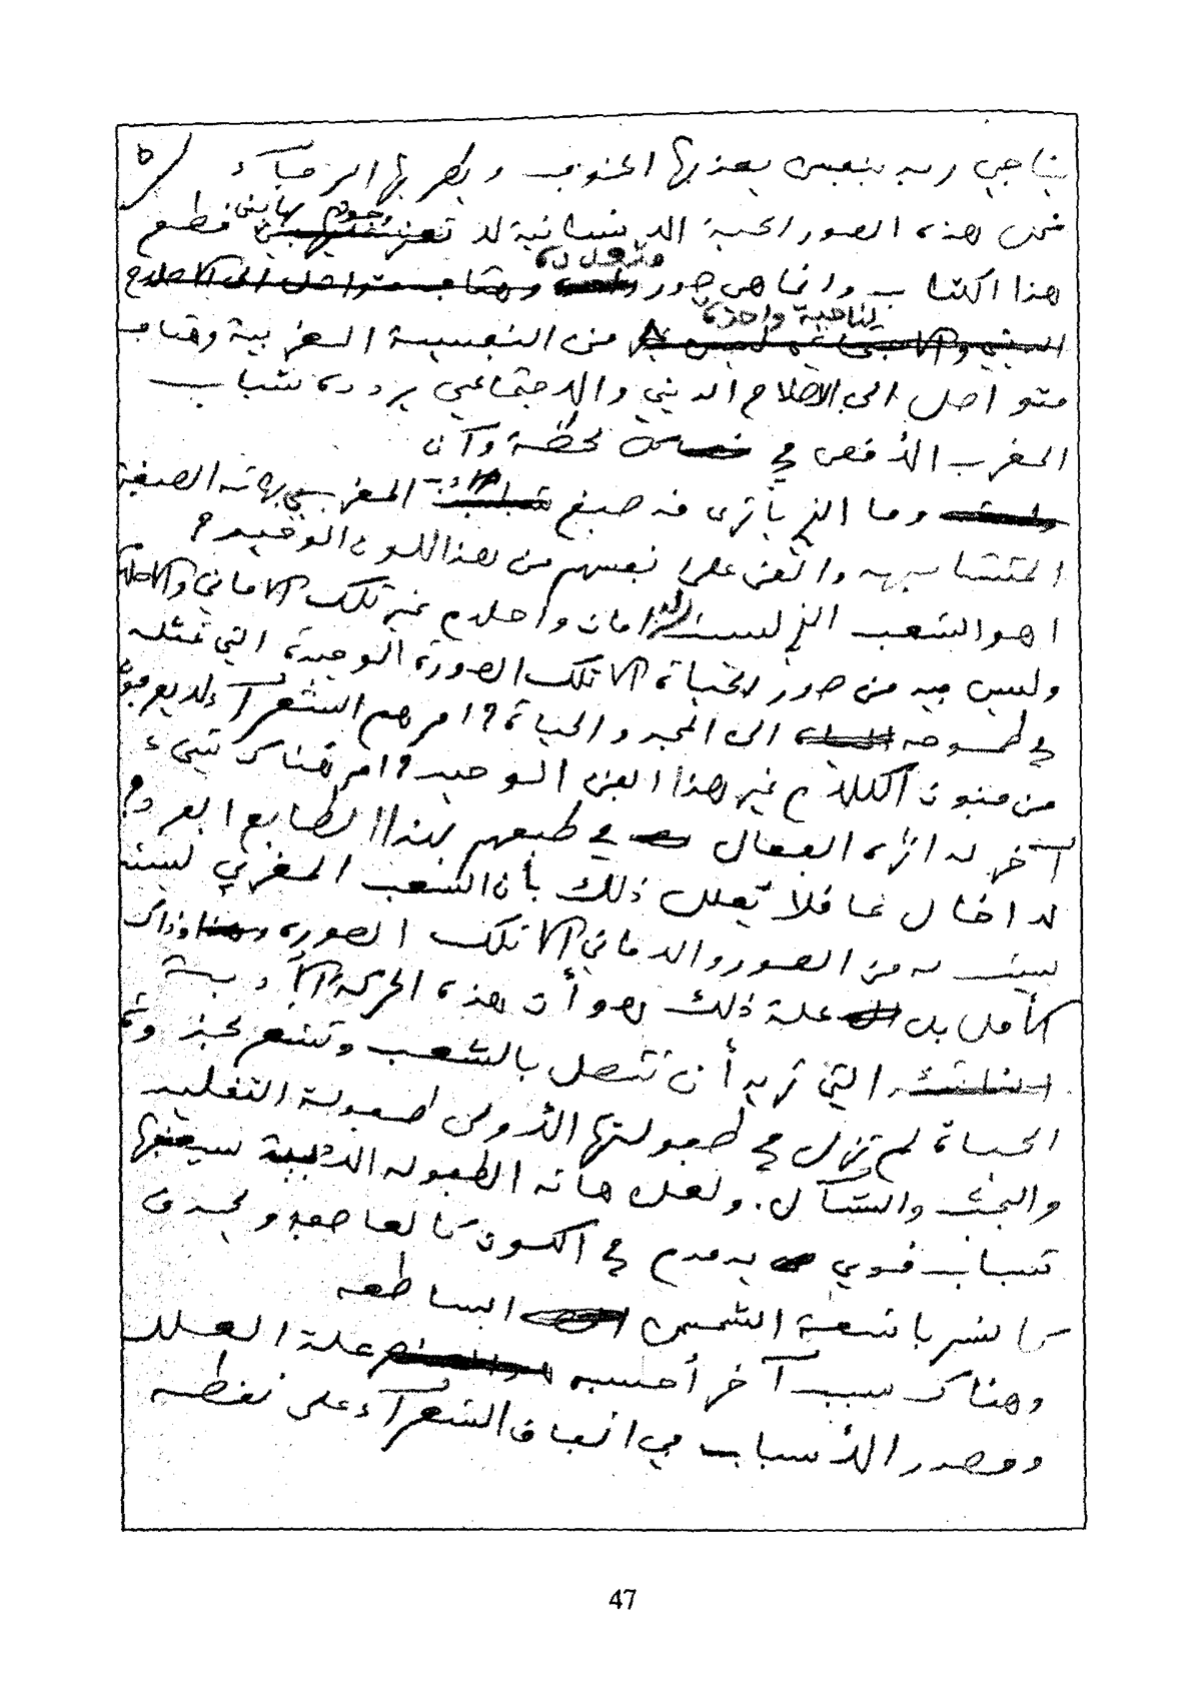 يناجي ربه بنفس يعذبها الخوف ويطربها الرجاء
٥
فمن هذه الصور الحية الانسانية لا نجوم بها بين قطع
هذا الكتاب وانما هي صور متعددة
لناحية واحدة من النفسية المغربية وهتاف
متواصل الى الاصلاح الديني والاجتماعي يردده شباب
المغرب الأقصى في كل لحظة وآن
وما الذي يا ترى قد صبغ المغربي بهاته الصبغة
المتشابهه والفن على نفسهم من هذا اللون الوحيد؟
اهو الشعب الذي ليست له امان واحلام غير تلك الاماني والاحلام
وليس فيه من صور الحياة الا تلك الصورة الوحيدة التي تمثله
في طموحه الى المجد والحياة؟ ام هم الشعرآء لا يعرفون
من فنون الكلام غير هذا الفن الوحيد؟ ام هناك شيء
آخر له اثره الفعال في طبعهم بهذا الطابع الفرد؟
لا اخال عاقلا يعلل ذلك بأن الشعب المغربي ليست
ليست له من الصور والاماني الا تلك الصوره وذاك
الأمل بل علة ذلك هو أن هذه الحركة الأدبية
التي تريد أن تتصل بالشعب وتشعر بخبز
الحياة لم تزل في طفولتها الأولى طفولة التقليد
والبحث والتسآل. ولعل هاته الطفوله الادبية سيعقبها
شباب قوي يدمدم في الكون كالعاصفه ويحدق
كالنسر باشعة الشمس الساطعه
وهناك سبب آخر أحسبه علة العلل
ومصدر الأسباب في اتفاق الشعرآء على نغطه
47